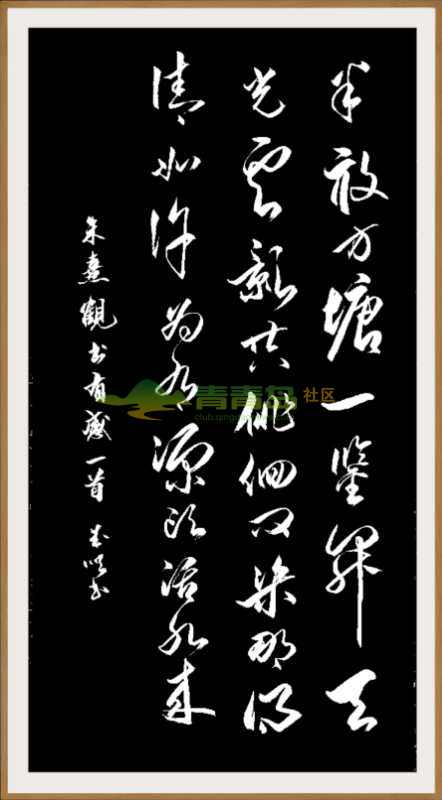 半畝方塘一鑒開天
光雲影共徘徊问渠那得
清如许为有源头活水来
朱熹觀书有感一首 书
青青岛社区